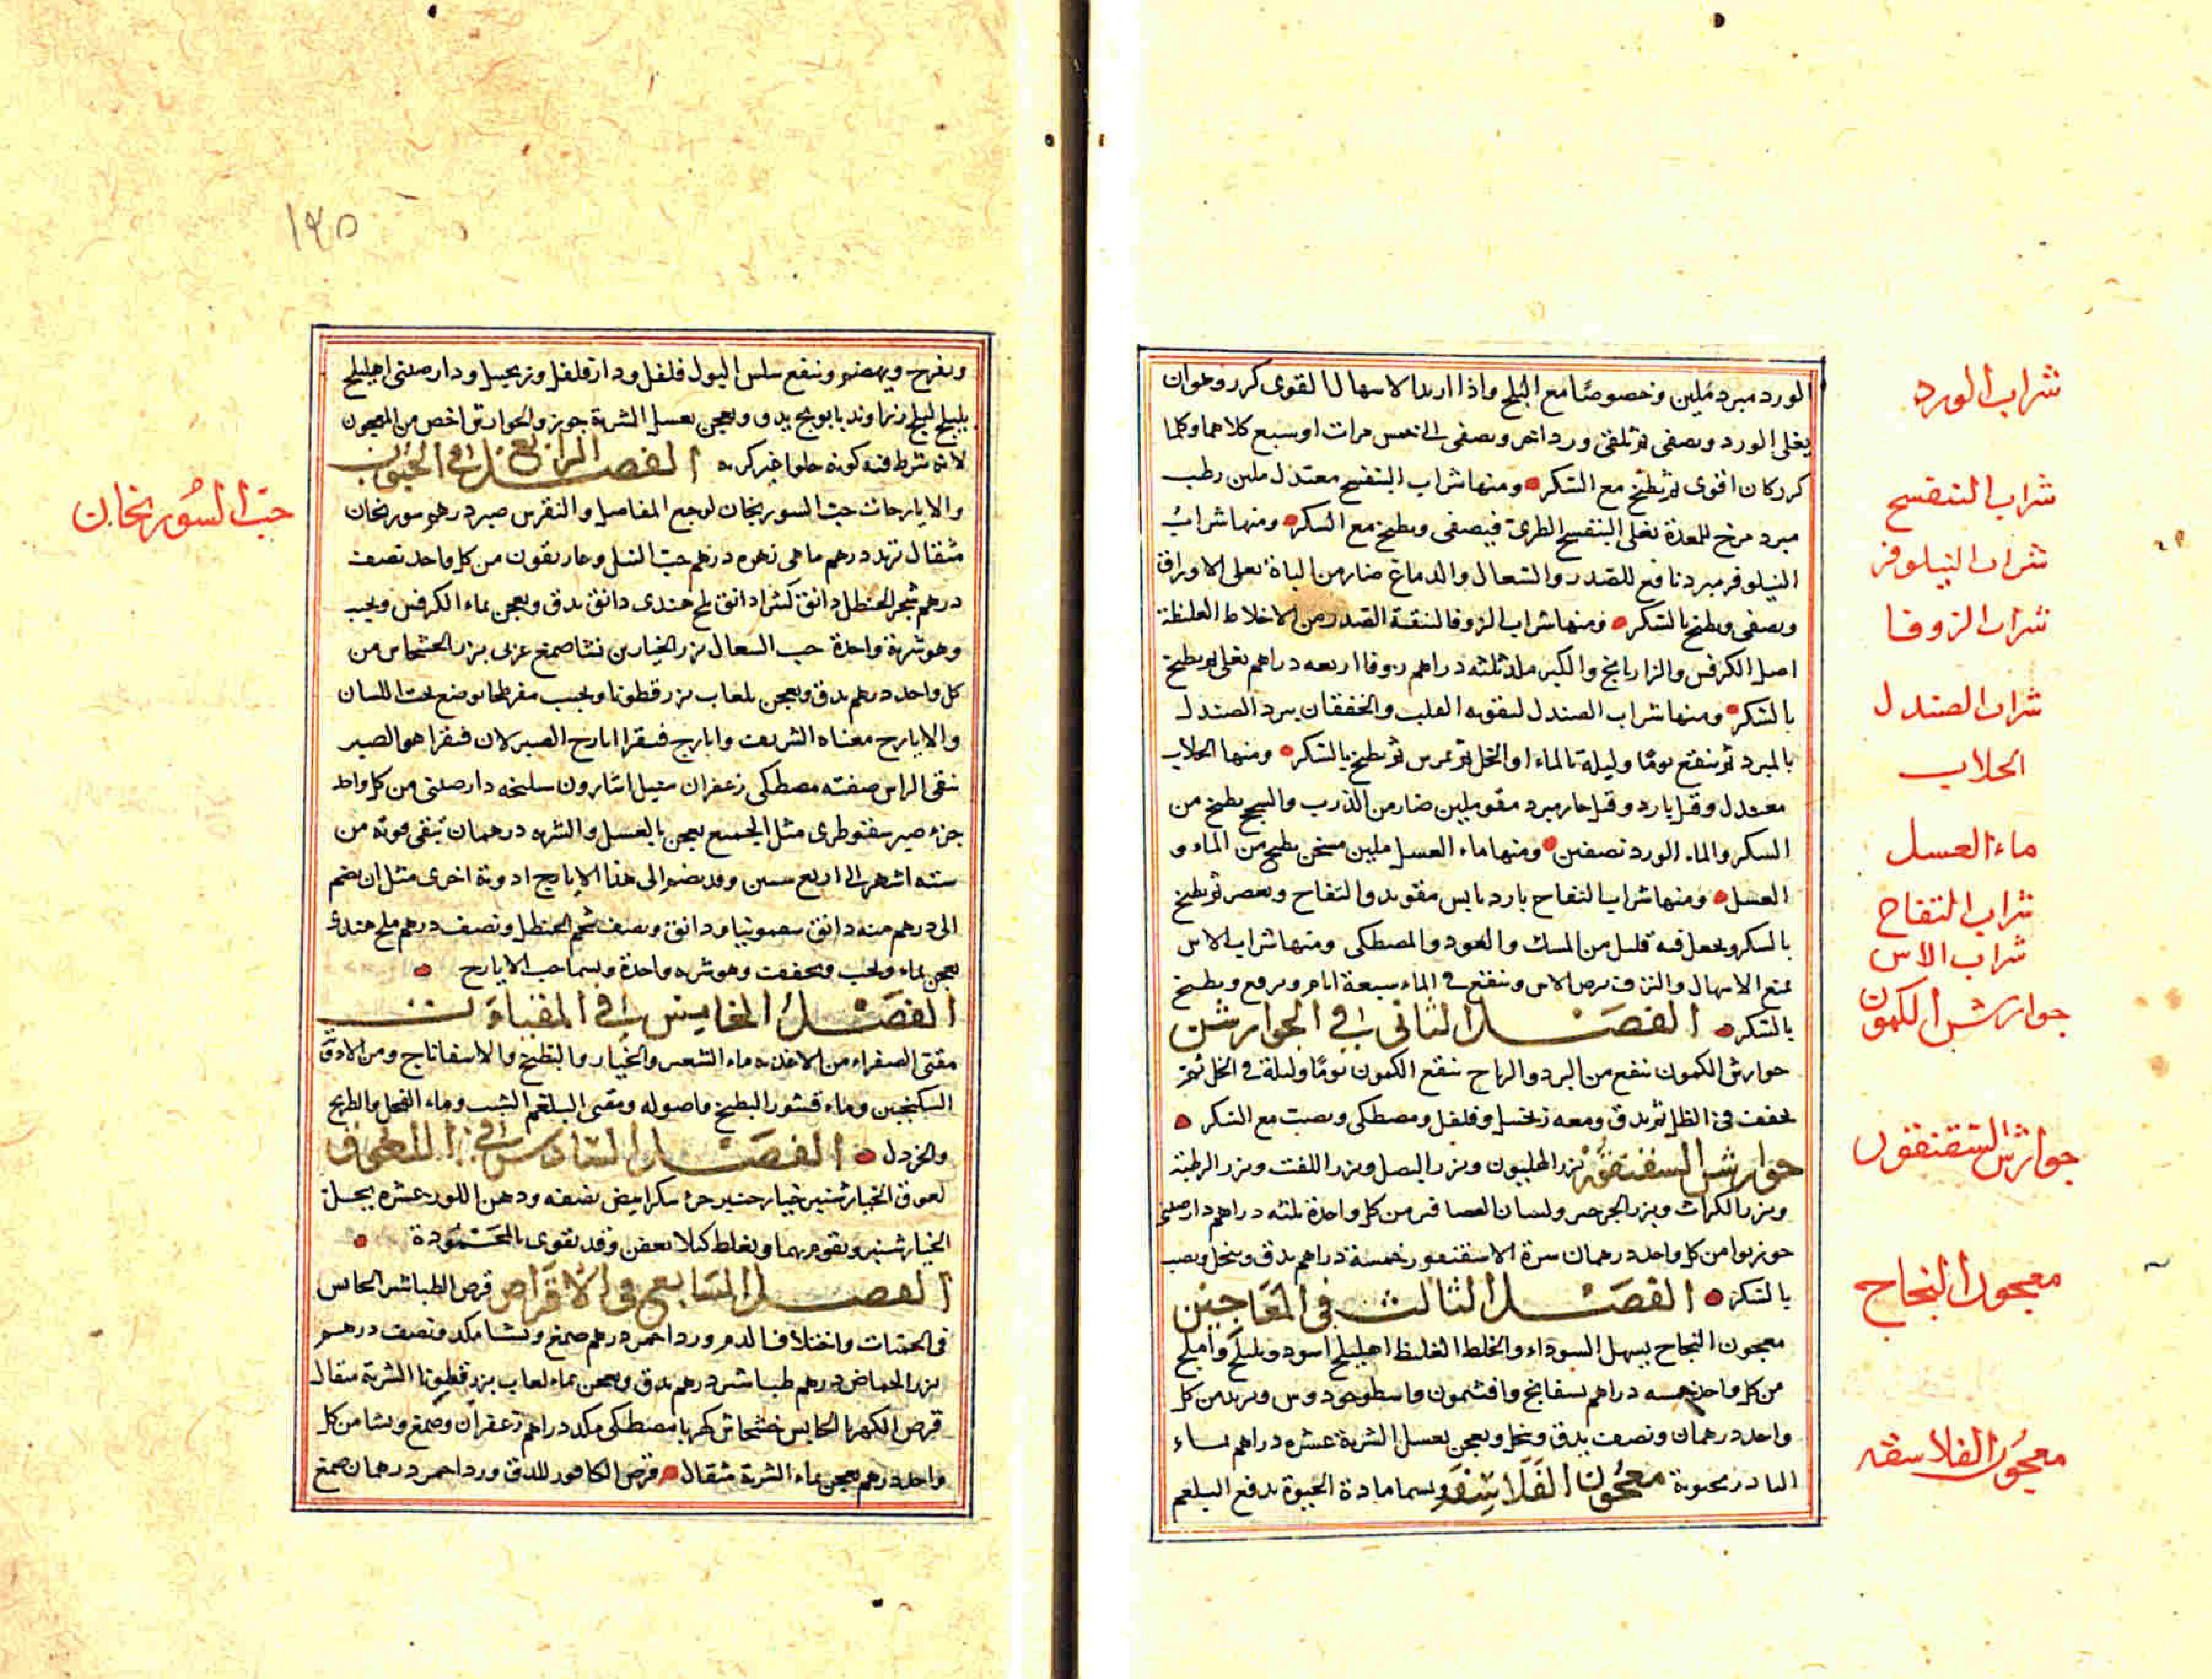 الورد مبرد ملين وخصوصًا مع البلح واذا اريد الاسهال القوى كرر وهوان
يغلى الورد ويصفى ثم تلقى ورد اخر ويصفى الى خمس مرات او سبع كلاهما وكلما
كرر كان اقوى ثم يطبخ مع السكر ومنها شراب البنفسج معتدل ملين رطب
مبرد مرخ للمعدة يغلى البنفسج الطرى فيصفى ويطبخ مع السكر ومنها شراب
النيلوفر مبرد نافع للصدر والسعال والدماغ ضار من الباة يغلى الاوراق
ويصفى ويطبخ بالسكر ومنها شراب الزوفا لتنقية الصدر من الاخلاط الغليظة
اصل الكرفس والرازيانج والكبر ثلثه دراهم زوفا اربعه دراهم يغلى ثم يطبخ
بالسكر ومنها شراب الصندل لتقويه القلب والخفقان يبرد الصندل
بالمبرد ثم ينقع يومًا وليلة بالماء او الخل ثم يمرس ثم يطبخ بالسكر ومنها الجلاب
معتدل وقيل بارد وقيل حار مبرد مقو ملين ضار من الذرب والسحج يطبخ من
السكر والماء الورد نصفين ومنها ماء العسل ملين مسخن يطبخ من الماء و
العسل ومنها شراب التفاح بارد يابس مقو يدق التفاح ويعصر ثم يطبخ
بالسكر ويجعل فيه قليل من المسك والعود والمصطكى ومنها شراب الاس
يمنع الاسهال والنزف يرض الاس وينقع فى الماء سبعة ايام ويرفع ويطبخ
بالسكر الفصل الثانى فى الجوارشن
جوارش الكمون ينفع من البرد والرياح ينقع الكمون يومًا وليلة فى الخل ثم
يجفف فى الظل ثم يدق ومعه زنجبيل وفلفل ومصطكى ويصب مع السكر
جوارش السقنقور بزر الهليون وبزر البصل وبزر اللفت وبزر الرطبة
وبزر الكراث وبزر الجرجير ولسان العصافير من كل واحدة ثلثه دراهم دارصينى
جوزبوا من كل واحد درهمان سرة الاسقنقور خمسة دراهم يدق وينخل ويصب
بالسكر الفصل الثالث فى المعاجين
معجون النجاح يسهل السوداء والخلط الغليظ اهليلج اسود وبليلج واملج
من كل واحد خمسه دراهم بسفايج وافتيمون واسطوخودوس وتربد من كل
واحد درهمان ونصف يدق وينخل ويعجن بعسل الشربة عشره دراهم بماء
معجون الفلاسفه ويسما مادة الحيوة يدفع البلغم
شراب الورد
شراب البنفسج
شراب النيلوفر
شراب الزوفا
شراب الصندل
الجلاب
ماء العسل
شراب التفاح
شراب الاس
جوارش الكمون
جوارش السقنقور
معجون النجاح
معجون الفلاسفه
١٤٥
ويفرح ويهضم وينفع سلس البول فلفل ودارفلفل وزنجبيل ودارصينى اهليلج
بليلج املج زراوند بابونج يدق ويعجن بعسل الشربة جوزة والجوارش اخص من المعجون
لانه شرط فيه كونه حلوا غير كريه الفصل الرابع فى الحبوب
والايارجات حب السورنجان لوجع المفاصل والنقرس صبر درهم سورنجان
مثقال تربد درهم ماهى زهره درهم حب النيل وغاريقون من كل واحد نصف
درهم شحم الحنظل دانق كثيرا دانق ملح هندى دانق يدق ويعجن بماء الكرفس ويحبب
وهو شربة واحدة حب السعال بزر الخيارين نشا صمغ عربى بزر الخشخاش من
كل واحد درهم يدق ويعجن بلعاب بزر قطونا ويحبب مفرطحا يوضع تحت اللسان
والايارج معناه الشريف وايارج فيقرا ايارج الصبر لان فيقرا هو الصبر
ينقى الراس صفته مصطكى زعفران سنبل اسارون سليخه دارصينى من كل واحد
جزء صبر سقوطرى مثل الجميع يعجن بالعسل والشربه درهمان تبقى قوته من
سته اشهر الى اربع سنين وقد يضم الى هذا الايارج ادوية اخرى مثل ان يضم
الى درهم منه دانق سقمونيا ودانق ونصف شحم الحنظل ونصف درهم ملح هندى
يعجن بماء ويحبب ويجفف وهو شربه واحدة ويسما حب الايارج
الفصل الخامس فى المقيات
مقيئ الصفراء من الاغذيه ماء الشعير والخيار والبطيخ والاسفاناج ومن الادوية
السكنجبين وماء قشور البطيخ واصوله ومقيى البلغم الشبت وماء الفجل والطريخ
والخردل الفصل السادس فى اللعوق
لعوق الخيارشنبر خيارشنبر جزء سكر ابيض نصفه ودهن اللوز عشره يحل
الخيارشنبر ويقوم بهما ويغلظ كيلا يعفن وقد يقوى بالمحمودة
الفصل السابع فى الاقراص قرص الطباشير الحابس
فى الحميات واختلاف الدم ورد احمر درهم صمغ ونشا مكد ونصف درهم
بزر الحماض درهم طباشير درهم يدق ويعجن بماء لعاب بزر قطونا الشربة مثقال
قرص الكهربا الحابس خشخاش كهربا مصطكى مكد دراهم زعفران وصمغ ونشا من كل
واحد درهم يعجن بماء الشربة مثقال قرص الكافور للدق ورد احمر درهمان صمغ
حب السورنجان